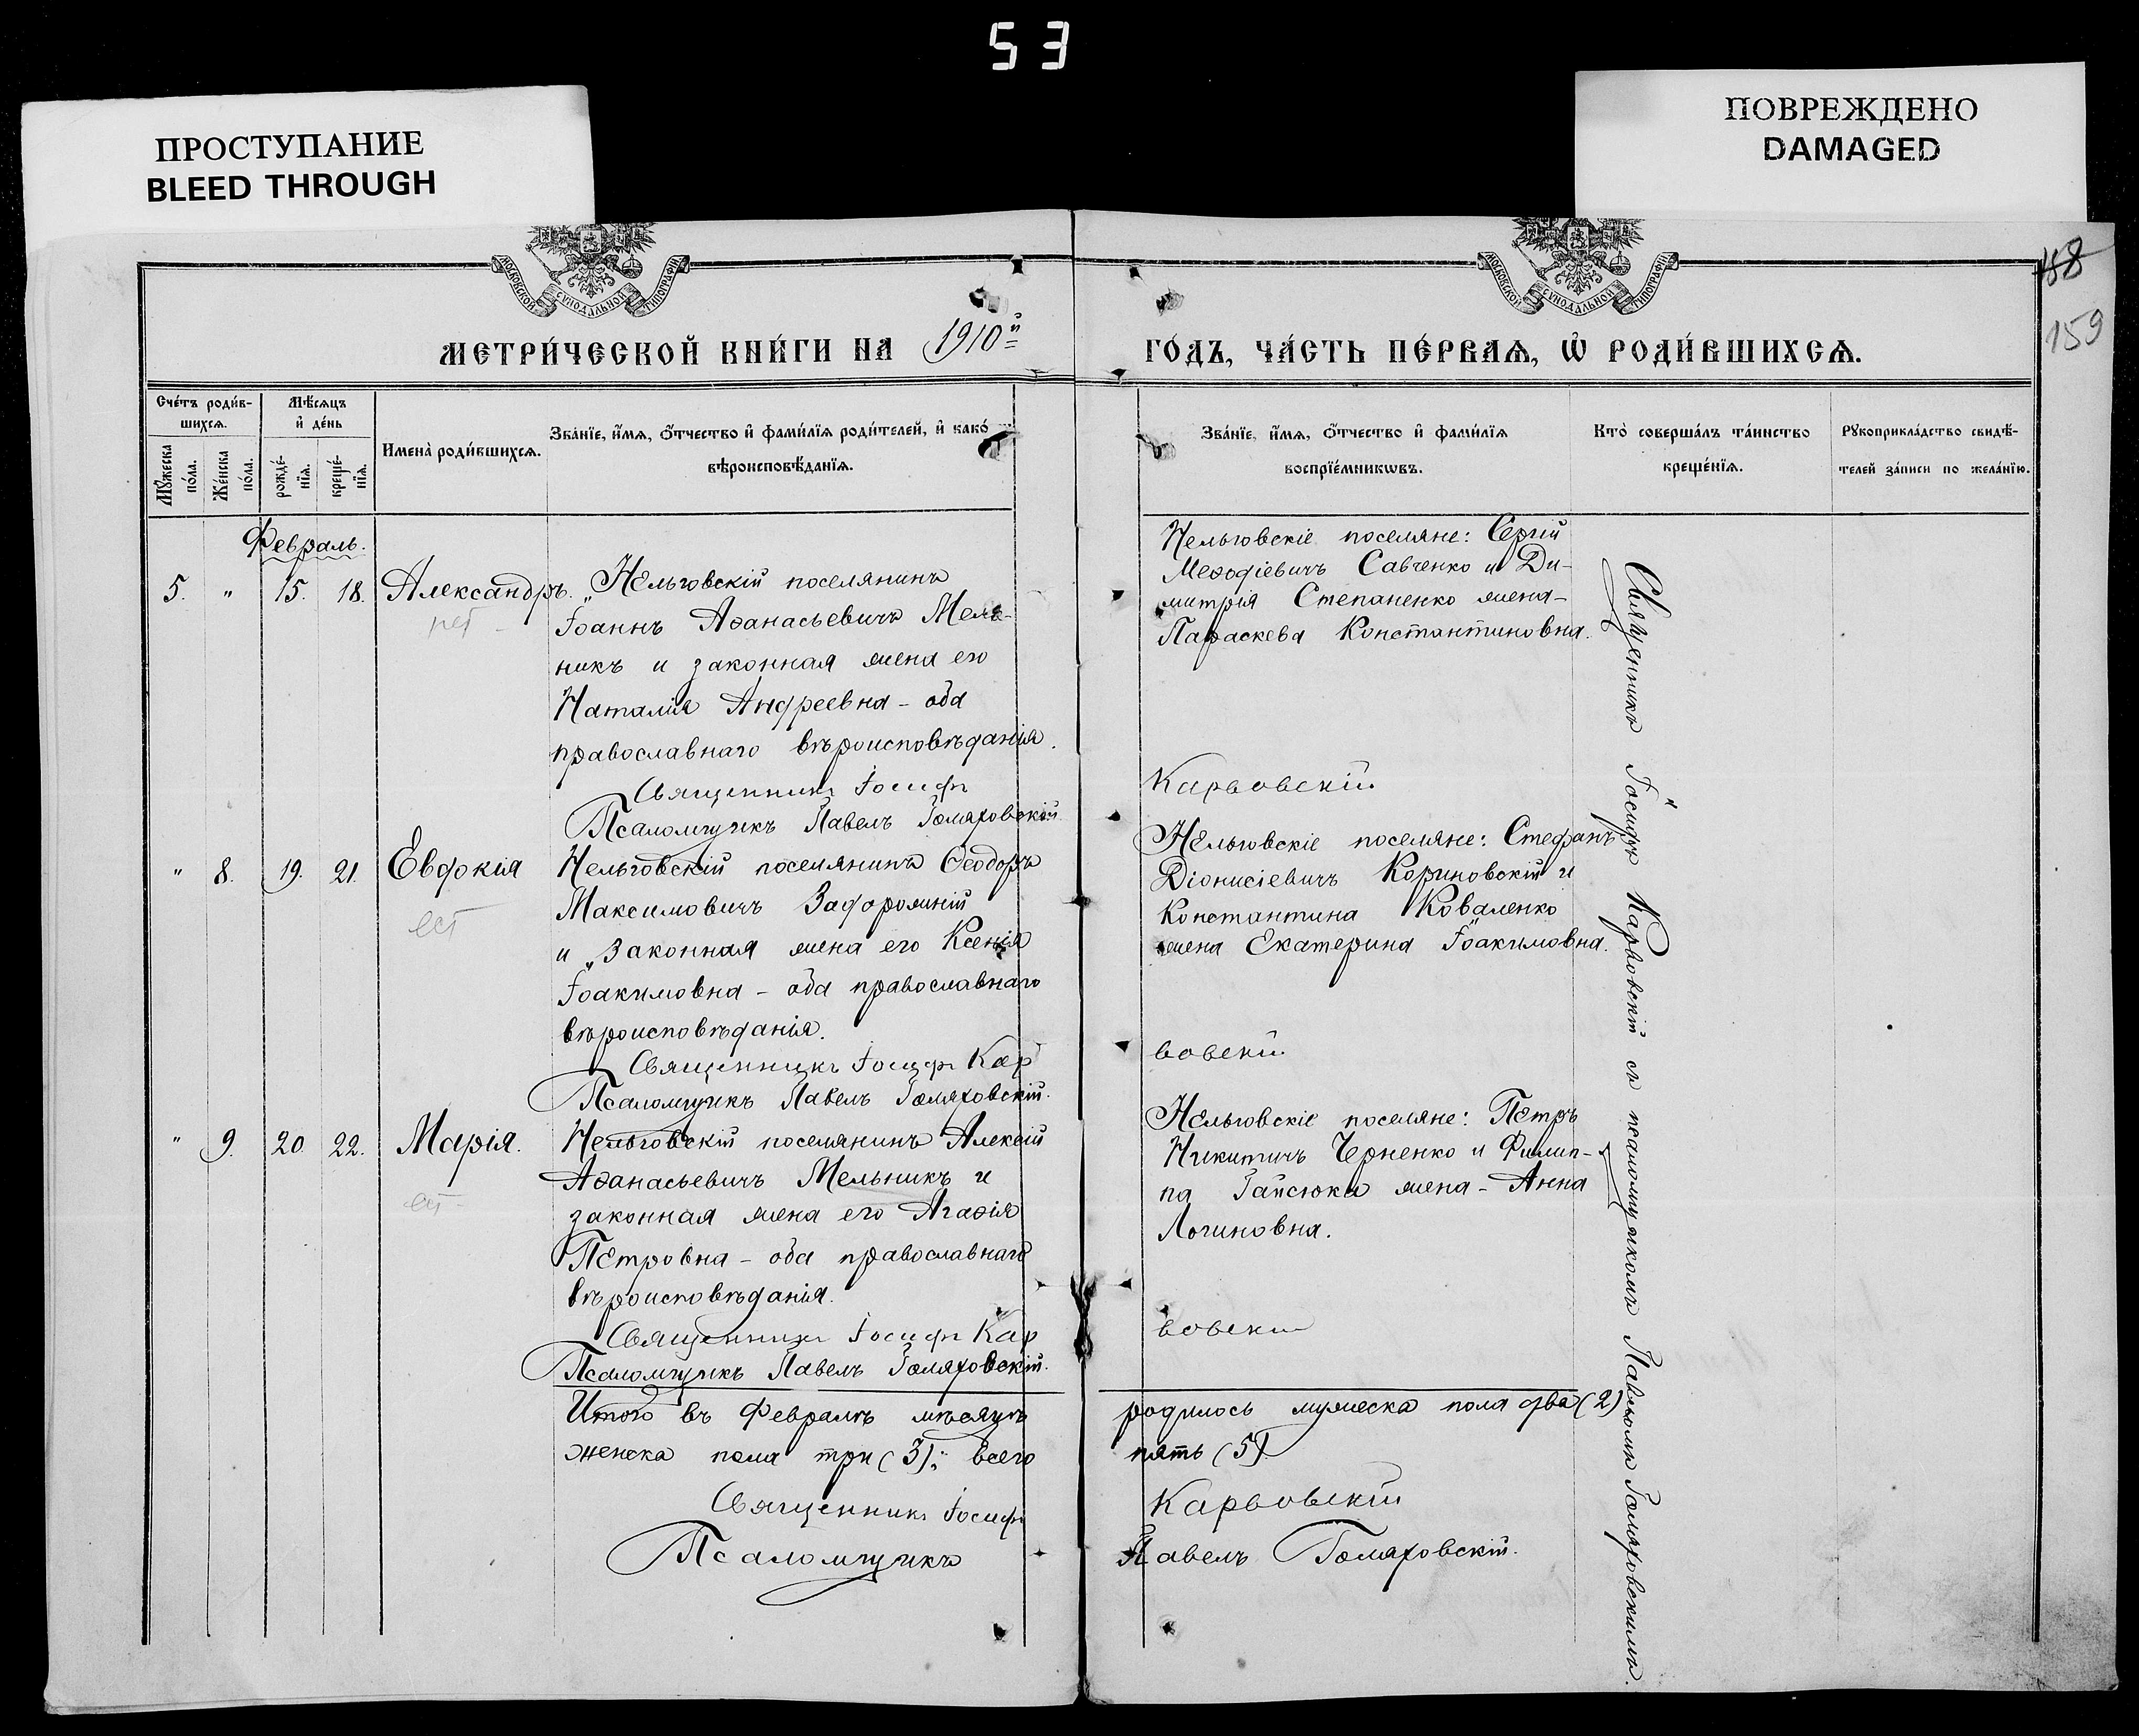 53
ПРОСТУПАНИЕ
BLEED THROUGH
ПОВРЕЖДЕНО
DAMAGED
МОСКОВСКОЙ СѴНОДАЛЬНОЙ ТИПОГРАФІИ
МОСКОВСКОЙ СѴНОДАЛЬНОЙ ТИПОГРАФІИ
158
159
МЕТРИ́ЧЕСКОЙ КНИ́ГИ НА 1910й
ГО́ДЪ, ЧА́СТЬ ПЕ́РВАѦ, Ѡ҆ РОДИ́ВШИХСѦ.
Сче́тъ роди́в-
шихсѧ.
Мѣ́сѧцъ
и҆ де́нь
Мꙋ́жеска
по́ла.
Же́нска
по́ла.
рожде́-
нїѧ.
креще́-
нїѧ.
Имена̀ роди́вшихсѧ.
Зва́нїе, и҆́мѧ, ѻ҆́тчество и҆ фами́лїѧ роди́телей, и҆ како́гѡ
вѣроисповѣ́данїѧ.
Зва́нїе, и҆́мѧ, ѻ҆́тчество и҆ фами́лїѧ
воспрїе́мникѡвъ.
Кто̀ соверша́лъ та́инство
креще́нїѧ.
Рꙋкоприкла́дство свидѣ́-
телей за́писи по жела́нїю.
Февраль.
5. " 15. 18. Александръ.
Нельговскій поселянинъ
Іоаннъ Аѳанасьевичъ Мель-
никъ и законная жена его
Наталія Андреевна - оба
православнаго вѣроисповѣданія.
Священникъ Іосифъ
Псаломщикъ Павелъ Гомяховскій
Нельговскіе поселяне: Сергій
Меѳодіевичъ Савченко и Ди-
митрія Степаненко жена-
Параскева Константиновна.
Карвовскій
" 8. 19. 21. Евдокія
ест
Нельговскій поселянинъ Ѳеодоръ
Максимовичъ Задорожній
и законная жена его Ксенія
Іоакимовна - оба православнаго
вѣроисповѣданія.
Священникъ Іосифъ Кар
Псаломщикъ Павелъ Гомяховскій.
Нельговскіе поселяне: Стефанъ
Діонисіевичъ Кориновскій и
Константина Коваленко
жена Екатерина Іоакимовна.
вовскій
" 9. 20. 22. Марія.
ест
Нельговскій поселянинъ Алексій
Аѳанасьевичъ Мельникъ и
законная жена его Агаѳія
Петровна - оба православнаго
вѣроисповѣданія.
Священникъ Іосифъ Кар
Псаломщикъ Павелъ Гомяховскій.
Нельговскіе поселяне: Петръ
Никитичъ Черненко и Филип-
па Гайсюка жена - Анна
Логиновна.
вовскій
Священникъ Іосифъ Карвовскій съ псаломщикомъ Павломъ Гомяховскимъ.
Итого въ Февралѣ мѣсяцѣ родилось мужеска пола два (2)
женска пола три (3); всего пять (5)
Священникъ Іосифъ Карвовскій
Псаломщикъ Павелъ Гомяховскій.